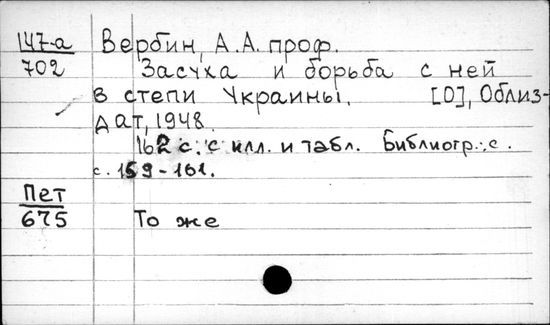 147-а Вербин, А.А. проф.
702 Засуха и борьба с ней
в степи Украины. [О], Облиз-
дат, 1948.
162 с. с илл. и табл. Библиогр.: с.
с. 159-161.
Пет
675 То же